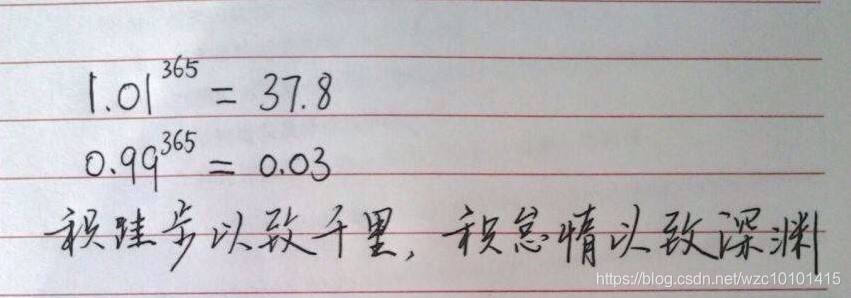 1.01^365 = 37.8
0.99^365 = 0.03
积跬步以致千里,积怠惰以致深渊
https://blog.csdn.net/wzc10101415